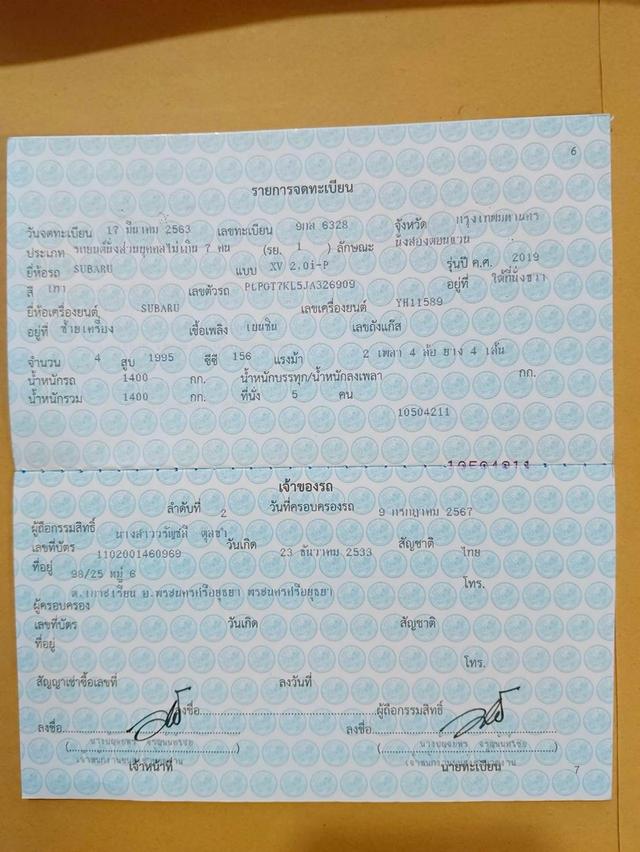 6
รายการจดทะเบียน
วันจดทะเบียน 17 มีนาคม 2563 เลขทะเบียน 9กส 6328 จังหวัด กรุงเทพมหานคร
ประเภท รถยนต์นั่งส่วนบุคคลไม่เกิน 7 คน (รย. 1 ) ลักษณะ นั่งสองตอนแวน
ยี่ห้อรถ SUBARU แบบ XV 2.0i-P รุ่นปี ค.ศ. 2019
สี เทา เลขตัวรถ PLPGT7KL5JA326909 อยู่ที่ ใต้ที่นั่งขวา
ยี่ห้อเครื่องยนต์ SUBARU เลขเครื่องยนต์ YH11589
อยู่ที่ ซ้ายเครื่อง เชื้อเพลิง เบนซิน เลขถังแก๊ส
จำนวน 4 สูบ 1995 ซีซี 156 แรงม้า 2 เพลา 4 ล้อ ยาง 4 เส้น
น้ำหนักรถ 1400 กก. น้ำหนักบรรทุก/น้ำหนักลงเพลา กก.
น้ำหนักรวม 1400 กก. ที่นั่ง 5 คน
10504211
เจ้าของรถ
ลำดับที่ 2 วันที่ครอบครองรถ 9 กรกฎาคม 2567
ผู้ถือกรรมสิทธิ์ นางสาว
เลขที่บัตร 1102001460969 วันเกิด 23 ธันวาคม 2533 สัญชาติ ไทย
ที่อยู่ 98/25 หมู่ 6 โทร.
ต.เกาะเรียน อ.พระนครศรีอยุธยา พระนครศรีอยุธยา
ผู้ครอบครอง
เลขที่บัตร วันเกิด สัญชาติ
ที่อยู่
โทร.
สัญญาเช่าซื้อเลขที่ ลงวันที่
ลงชื่อ ผู้ถือกรรมสิทธิ์
ลงชื่อ ลงชื่อ
เจ้าหน้าที่ นายทะเบียน
7